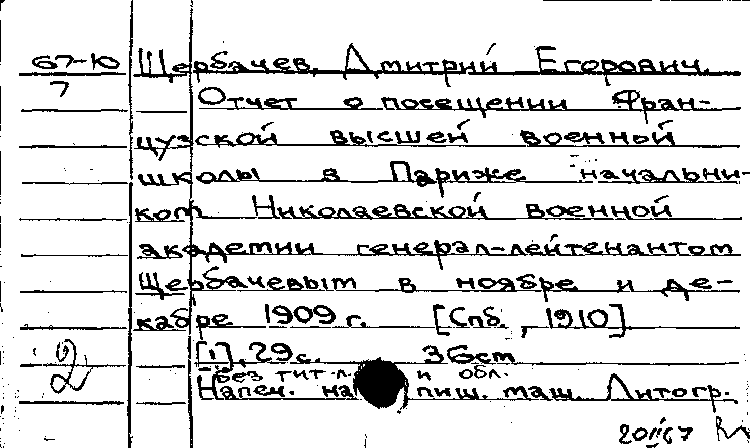 67-Ю Щербачев, Дмитрий Егорович.
7 Отчет о посещении Фран-
цузской высшей военной
школы в Париже начальни-
ком Николаевской военной
академии генерал-лейтенантом
Щербачевым в ноябре и де-
кабре 1909 г. [Спб., 1910]
2 [1], 29 с. 36 cm
Без тит. л. и обл.
Напеч. на пиш. маш. Литогр.
20II67